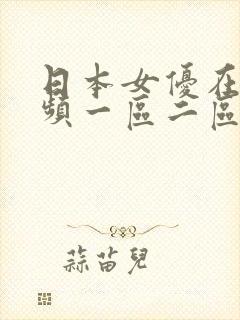 日本女優在
頻一區二區
蒜苗兒